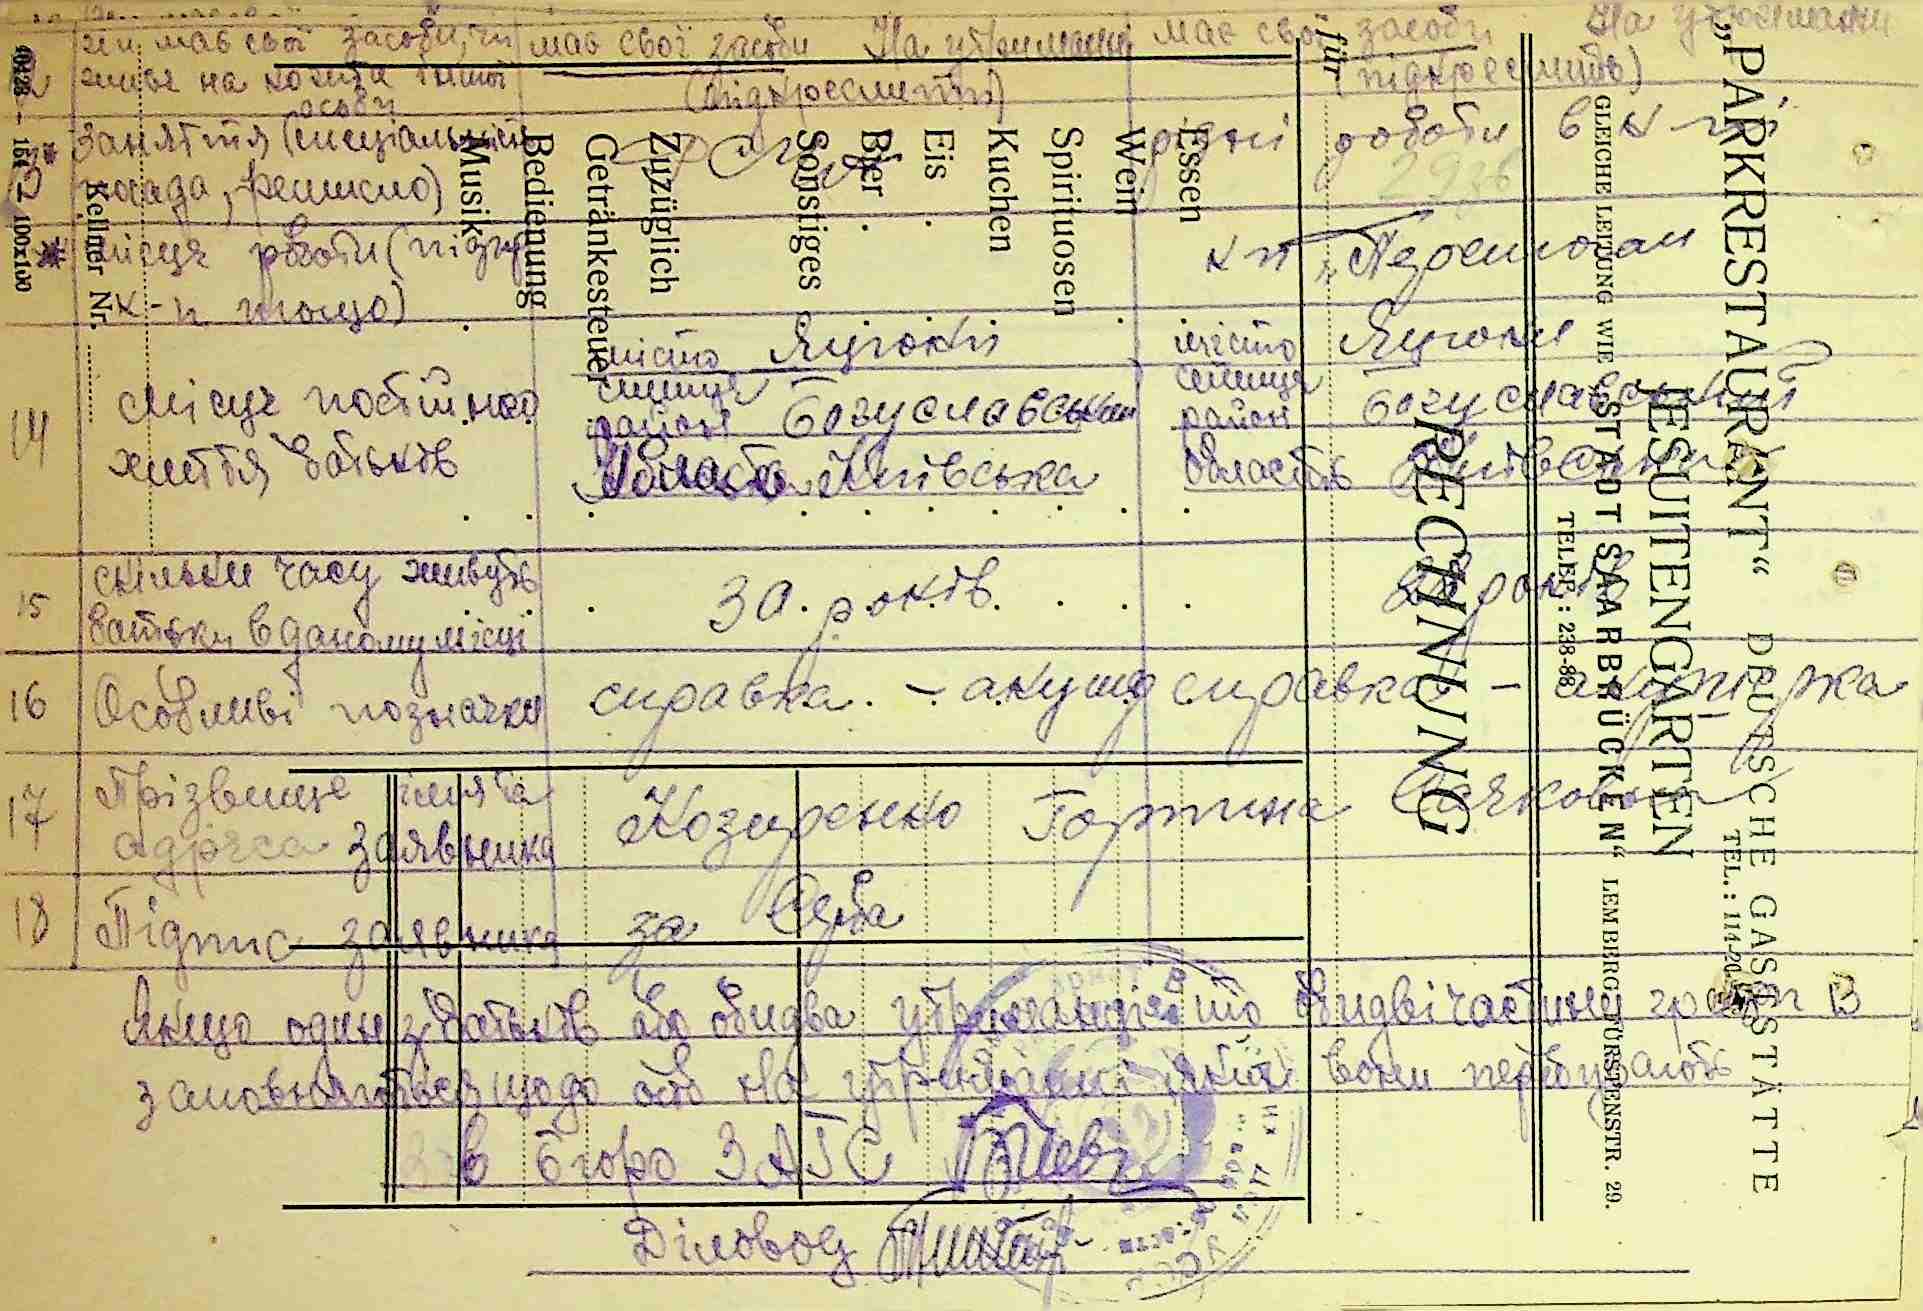 чи має свої засоби, чи має свої засоби На утриманні має свої засоби На утриманні
живе на кошти іншої (підкреслити) (підкреслить)
особи
заняття (спеціальність рідні роботи в к-п
посада, ремисло)
місце роботи (підпр к-п „Перемога"
к-п тощо)
14 Місце постійного життя батьків
місто Яцюки місто Яцюки
селище селище
район Богуславський район Богуславський
область Київська область Київська
15 скільки часу живуть 30 років років
батьки в даному місці
16 Особливі позначки справка - акушо справка - акушерка
17 Прізвище ім'я та Козиренко Горпина
адреса заявника
18 Підпис заявника за
Якщо один з батьків або обидва утриманці то обидві частини граф 13
заповняється щодо осіб на утриманні яких вони перебувають
Зав бюро ЗАГС
Діловод
„PARKRESTAURANT“ DEUTSCHE GASTSTÄTTE
JESUITENGARTEN TEL.: 114-20
GLEICHE LEITUNG WIE „STADT SAARBRÜCKEN“ LEMBERG, FÜRSTENSTR. 29.
TELEF.: 238-88
RECHNUNG
für
Essen
Wein
Spirituosen
Kuchen
Eis
Bier
Sonstiges
Zuzüglich
Getränkesteuer
Bedienung
Musik
Kellner Nr.
100x100